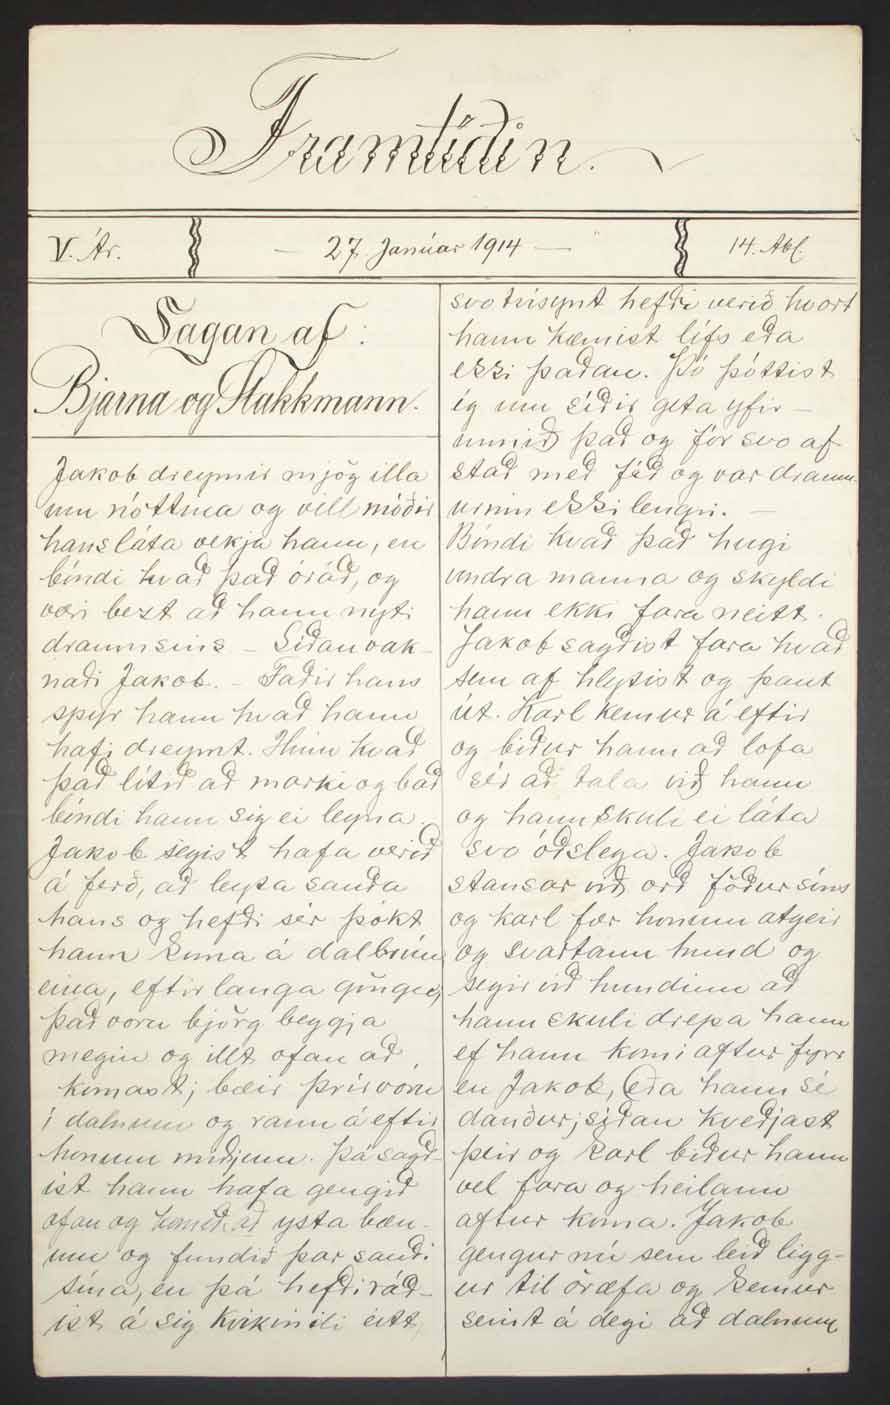 Framtíðin.
V. Ár.
27. Janúar 1914
14. tbl.
Sagan af:
Bjarna og Stakkmann.
Jakob dreymir mjög illa
um nóttina og vill móðir
hans láta vekja hann, en
bóndi hvað það óráð, og
væri bezt að hann nyti
draumsins – Síðan vak-
naði Jakob. – Faðir hans
spyr hann hvað hann
hafi dreymt. Hinn hvað
það lítið að marki og bað
bóndi hann sig ei leyna.
Jakob segist hafa verið
á ferð, að leysa sauða
hans og hefði sér þókt
hann koma á dalbrún
eina, eftir langa göngu,
það voru björg beggja
megin og illt ofan að
komast; bæir þrír vóru
í dalnum og rann á eftir
honum miðjum. Þá sagð-
ist hann hafa gengið
ofan og að ysta bæn-
um og fundið þar sauði
sína, en þá hefði ráð-
ist á sig kvikindi eitt,
svo tvísýnt hefði verið hvort
hann kæmist lífs eða
ekki þaðan. Þó þóttist
ég um síðir geta yfir-
unnið það og fór svo af
stað með féð og var draum-
urinn ekki lengri. –
Bóndi kvað það hugi
undra manna og skyldi
hann ekki fara neitt.
Jakob sagðist fara hvað
sem af hlytist og þaut
út. Karl kemur á eftir
og biður hann að lofa
sér að tala við hann
og hann skuli ei láta
svo óðslega. Jakob
stansar við orð föður síns
og karl fær honum atgeir
og svartann hund og
segir við hundinn að
hann skuli drepa hann
ef hann komi aftur fyrr
en Jakob, eða hann sé
dauður; síðan kveðjast
þeir og karl biður hann
vel fara og heilann
aftur koma. Jakob
gengur nú sem leið ligg-
ur til öræfa og kemur
seint á degi að dalnum,